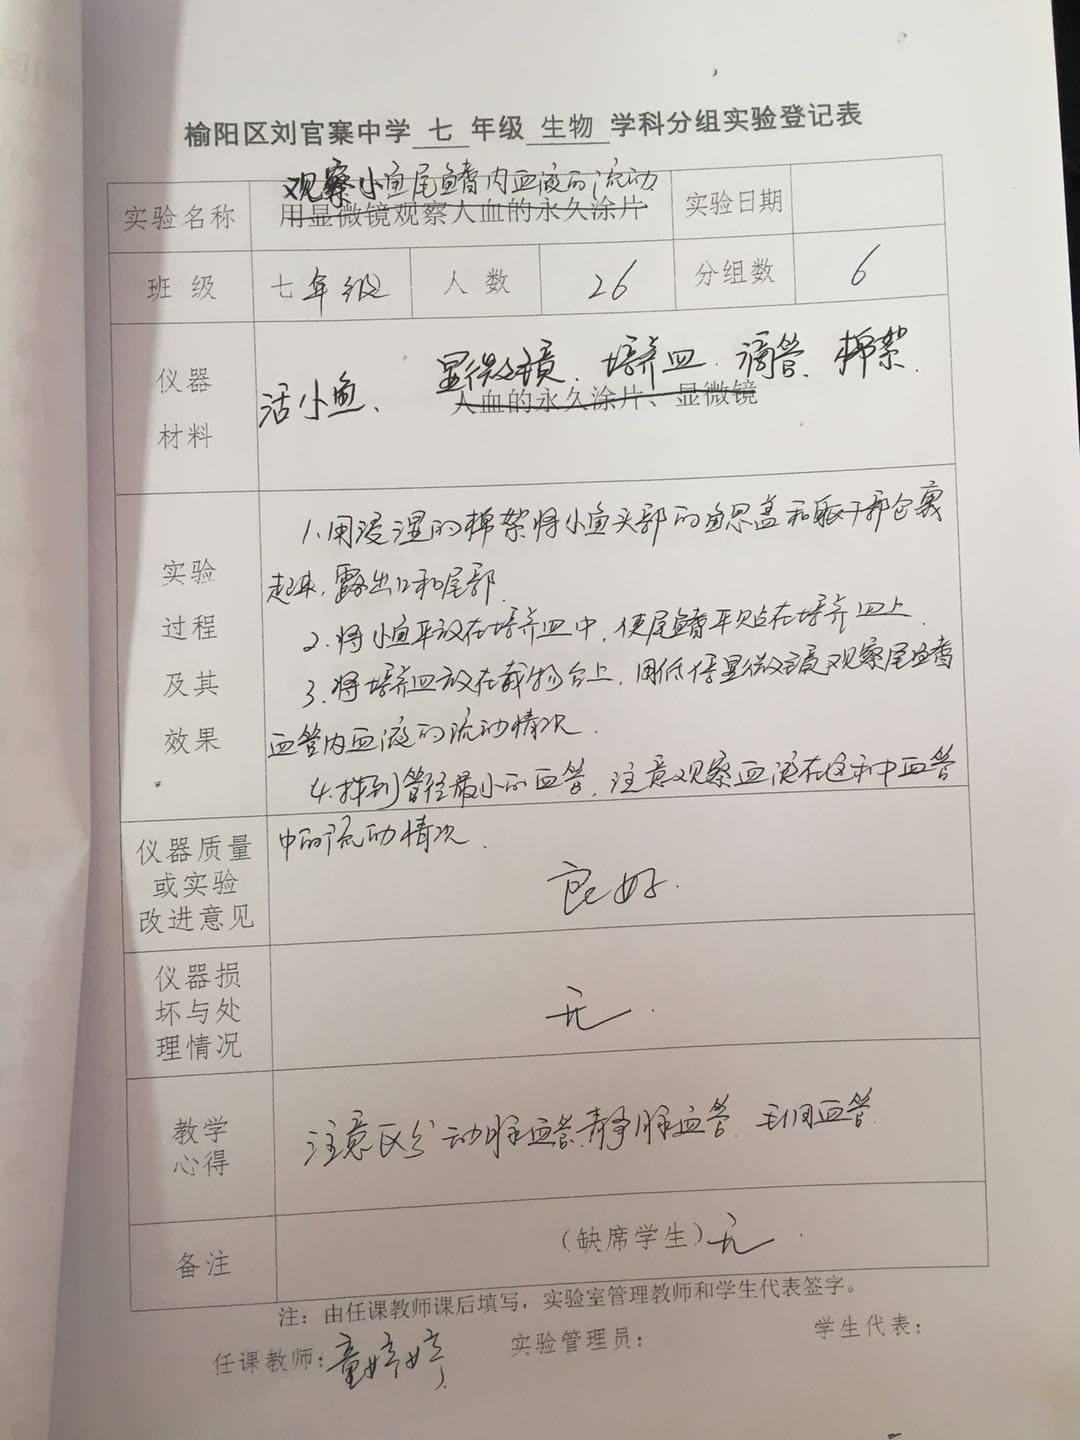 榆阳区刘官寨中学 七 年级 生物 学科分组实验登记表
观察小鱼尾鳍内血液的流动
实验名称 用显微镜观察人血的永久涂片 实验日期
班 级 七年级 人 数 26 分组数 6
显微镜、培养皿、滴管、棉絮
仪器 活小鱼、 人血的永久涂片、显微镜
材料
1.用浸湿的棉絮将小鱼头部的鱼思盖和躯干部包裹
实验 起来,露出口和尾部.
过程 2.将小鱼平放在培养皿中,使尾鳍平贴在培养皿上.
及其 3.将培养皿放在载物台上,用低倍显微镜观察尾鳍
效果 血管内血液的流动情况.
4.找到管径最小的血管,注意观察血液在这种中血管
仪器质量 中的流动情况.
或实验 良好.
改进意见
仪器损
坏与处 无.
理情况
教学 注意区分动脉血管、静脉血管、毛细血管.
心得
备注 (缺席学生)无.
注：由任课教师课后填写，实验室管理教师和学生代表签字。
任课教师:童婷婷 实验管理员： 学生代表：